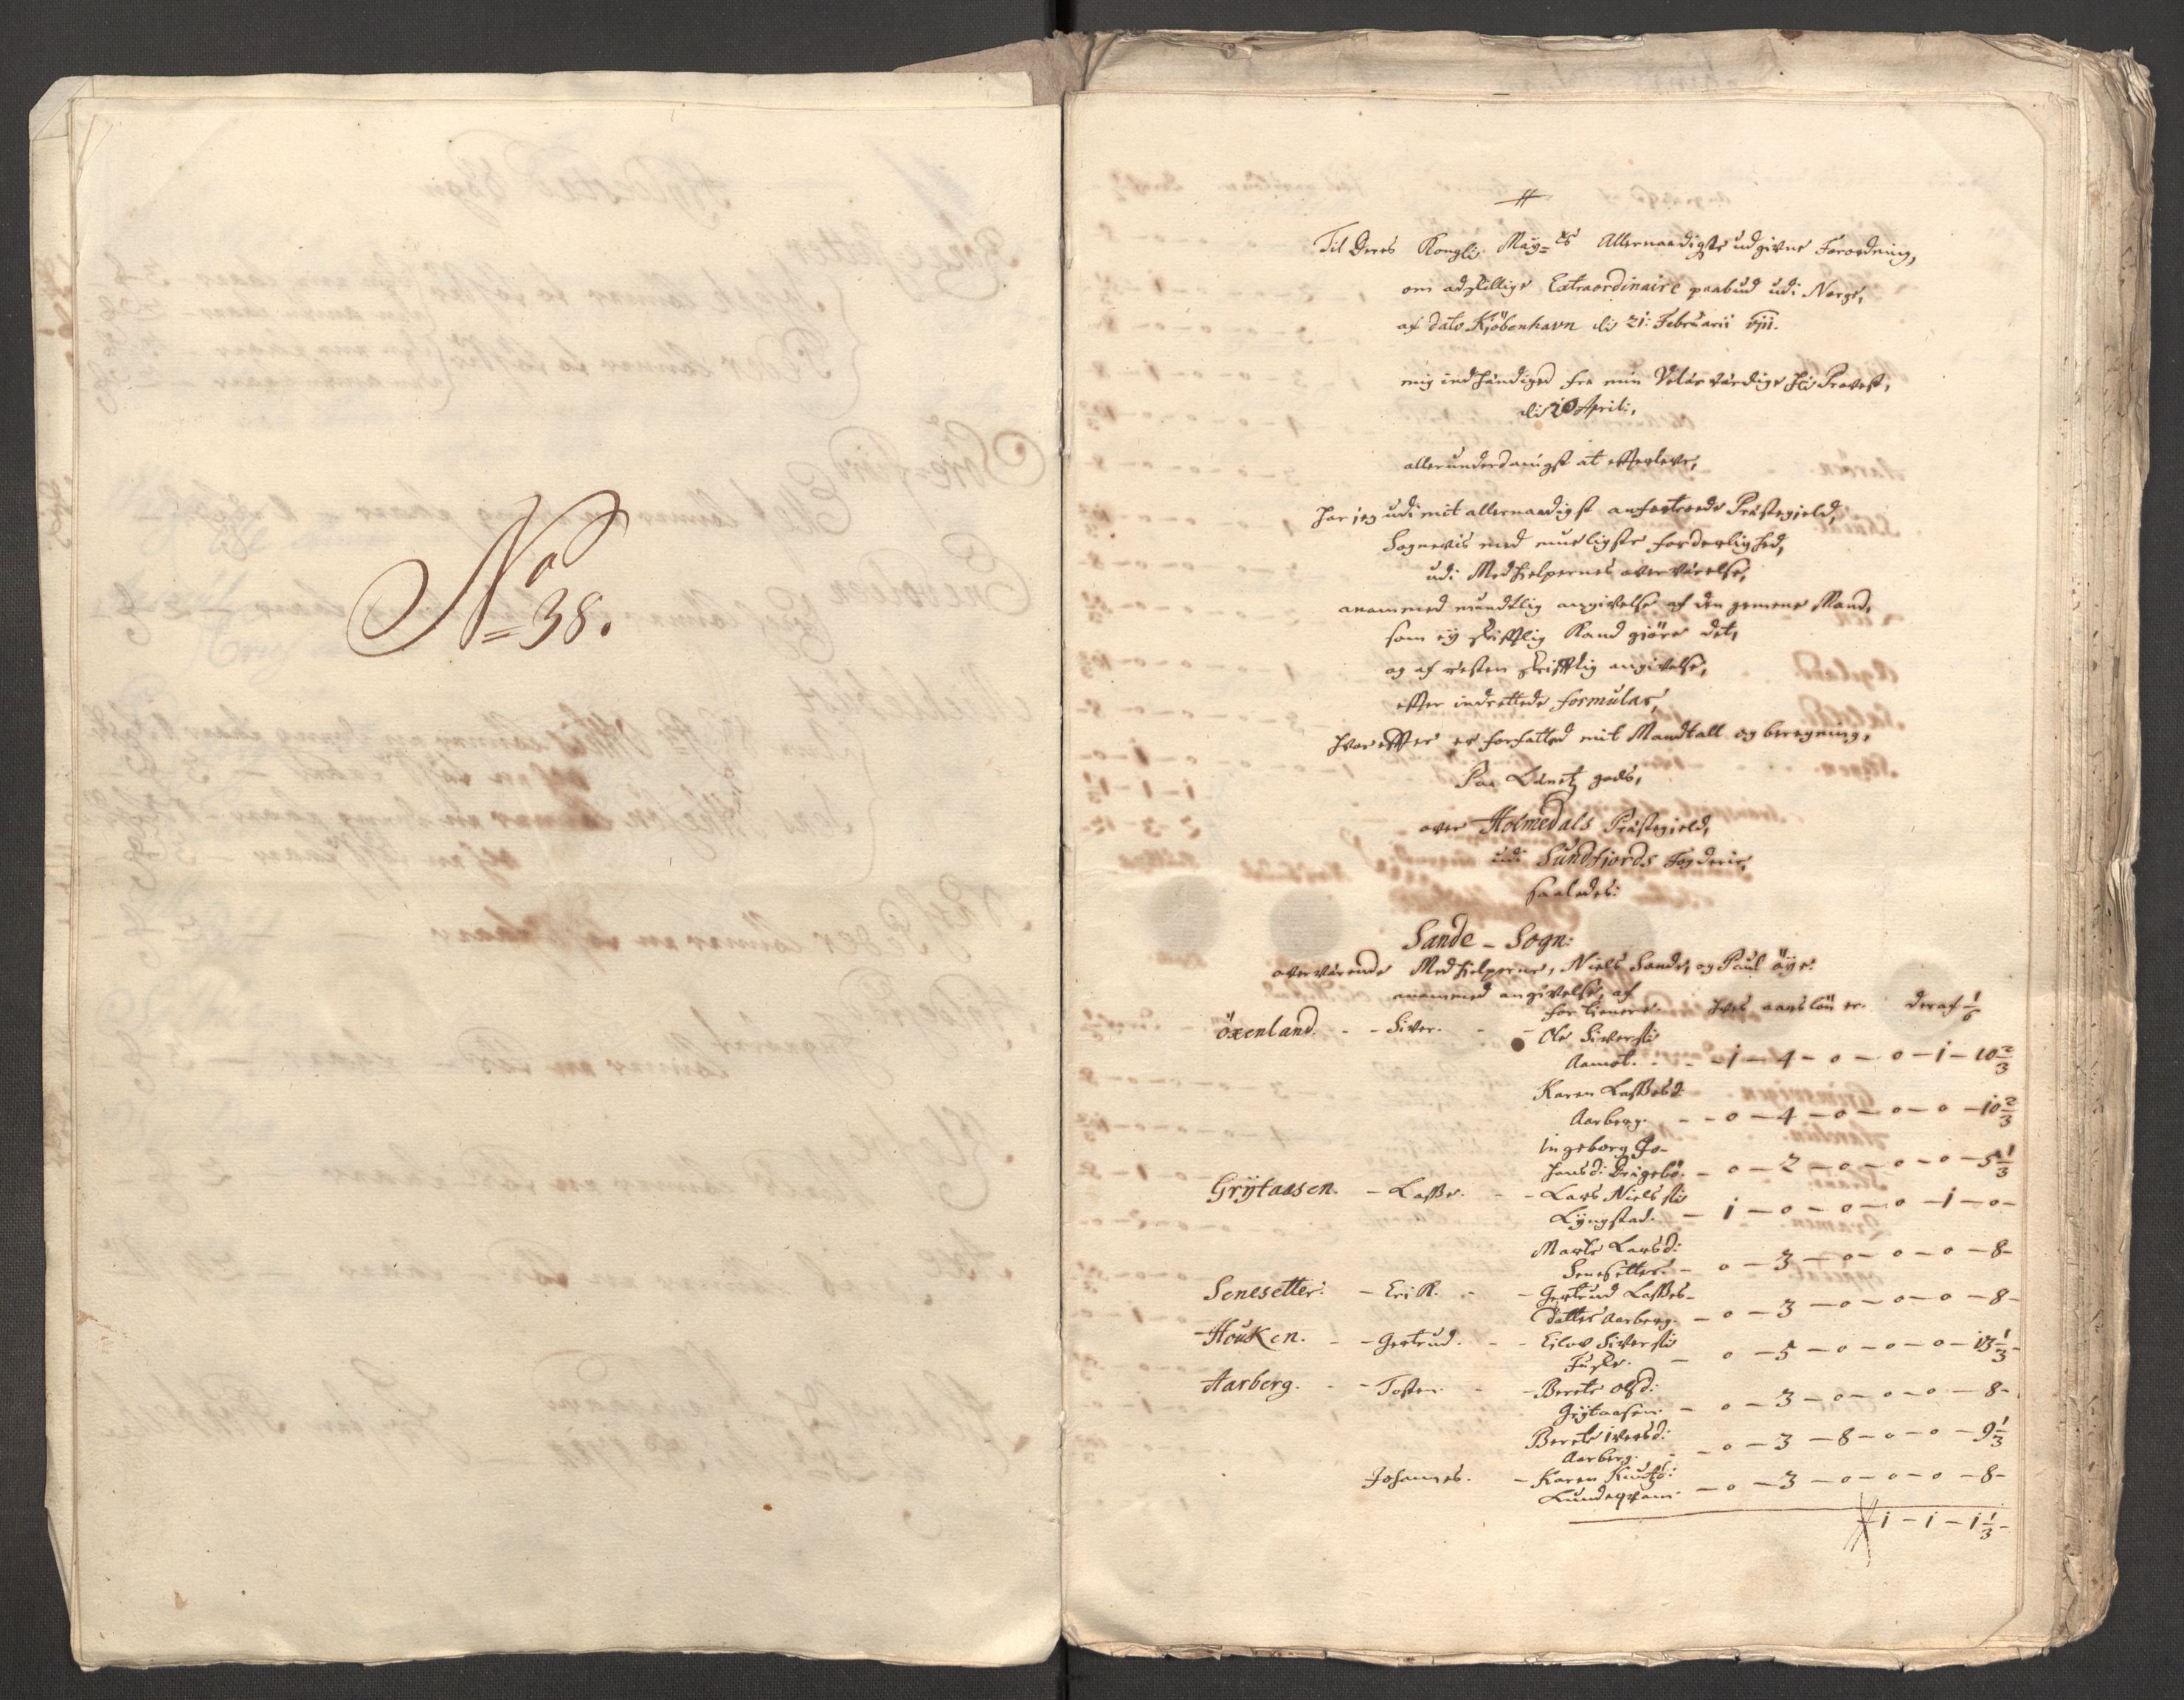 No 38.
#
Til Deres Kongli. May=ts Allernaadigste udgivne Forordning,
om adskillige Extraordinaire paabud udi Norge,
af dato Kiöbenhavn di 21: Februarii
mig indhändiged fra min Velærværdige Hr Provst,
d: 20 April:,
allerunderdanigst at efterleve,
har jeg udi mit allernaadigst anfortroede Præstegield,
Sognevis med mueligste forderlighed,
udi Medhielpernes overværelse,
anammed mundtlig angivelse af den gemene Mand,
som ey skrifftlig Kand giöre det,
og af resten skrifftlig angivelse,
effter indrettede formular,
hvoreffter er forfatted mit Mandtall og beregning,
Paa gods,
over Holmedals Præstegield,
udi Sundfiords Fogderie,
saaledes:
Sande - Sogn:
overværende Medhielperne, Niels Sande, og Paul öye.
anammed angivelse, af
for tienere. hves aarslön er. deraf 1/6
öxenland. - - Siver. - - Ole Sivers:
Aamot. - - 1 - 4 - 0 - 0 - 1 - 10 2/3
Karen Lassesd:
Aarberg. - - 0 - 4 - 0 - 0 - 0 - 10 2/3
Ingeborg Jo-
hansd: Dragebö. - 0 - 2 - 0 - 0 - 0 - 5 1/3
Grÿtaasen. - Lasse. - - Lars Niels:
Lyngstad. - 1 - 0 - 0 - 0 - 1 - 0 -
Marte Larsd:
Senesetter. - 0 - 3 - 0 - 0 - 0 - 8 -
Senesetter: - Erik. - - Gertrud Lasses-
datter Aarberg. - 0 - 3 - 0 - 0 - 0 - 8 -
Houken. - - Gertrud. - - Eilov Sivers:
- 0 - 5 - 0 - 0 - 0 - 13 1/3 -
Aarberg. - - Tosten. - - Berete olsd:
Grÿtaasen. - 0 - 3 - 0 - 0 - 0 - 8 -
Berete iversd:
Aarberg. - - 0 - 3 - 8 - 0 - 0 - 9 1/3
Johannes. - Karen Knutzd:
- 0 - 3 - 0 - 0 - 0 - 8 -
1 - 1 - 1 1/3 -